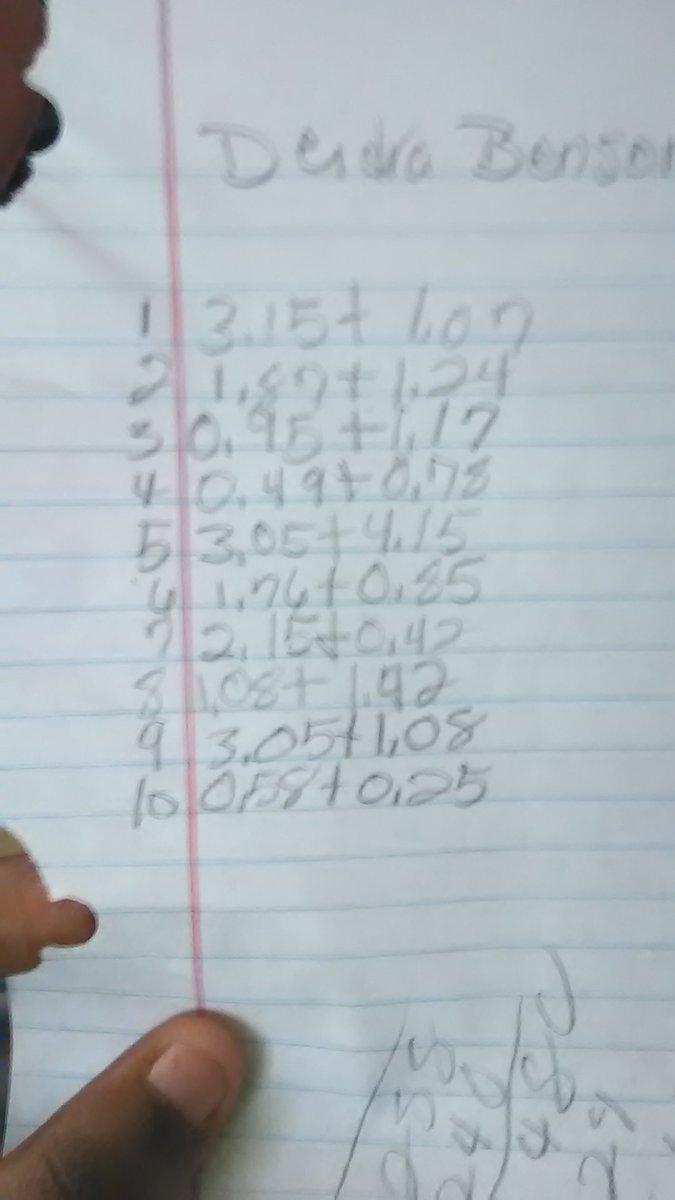 Deidra Benson
1 3.15+ 1.07
2 1.87+1.24
3 0.95+1.17
4 0.49+0.78
5 3.05+4.15
6 1.76+0.85
7 2.15+0.42
8 1.08+ 1.92
9 3.05+1.08
10 0.58+0.25